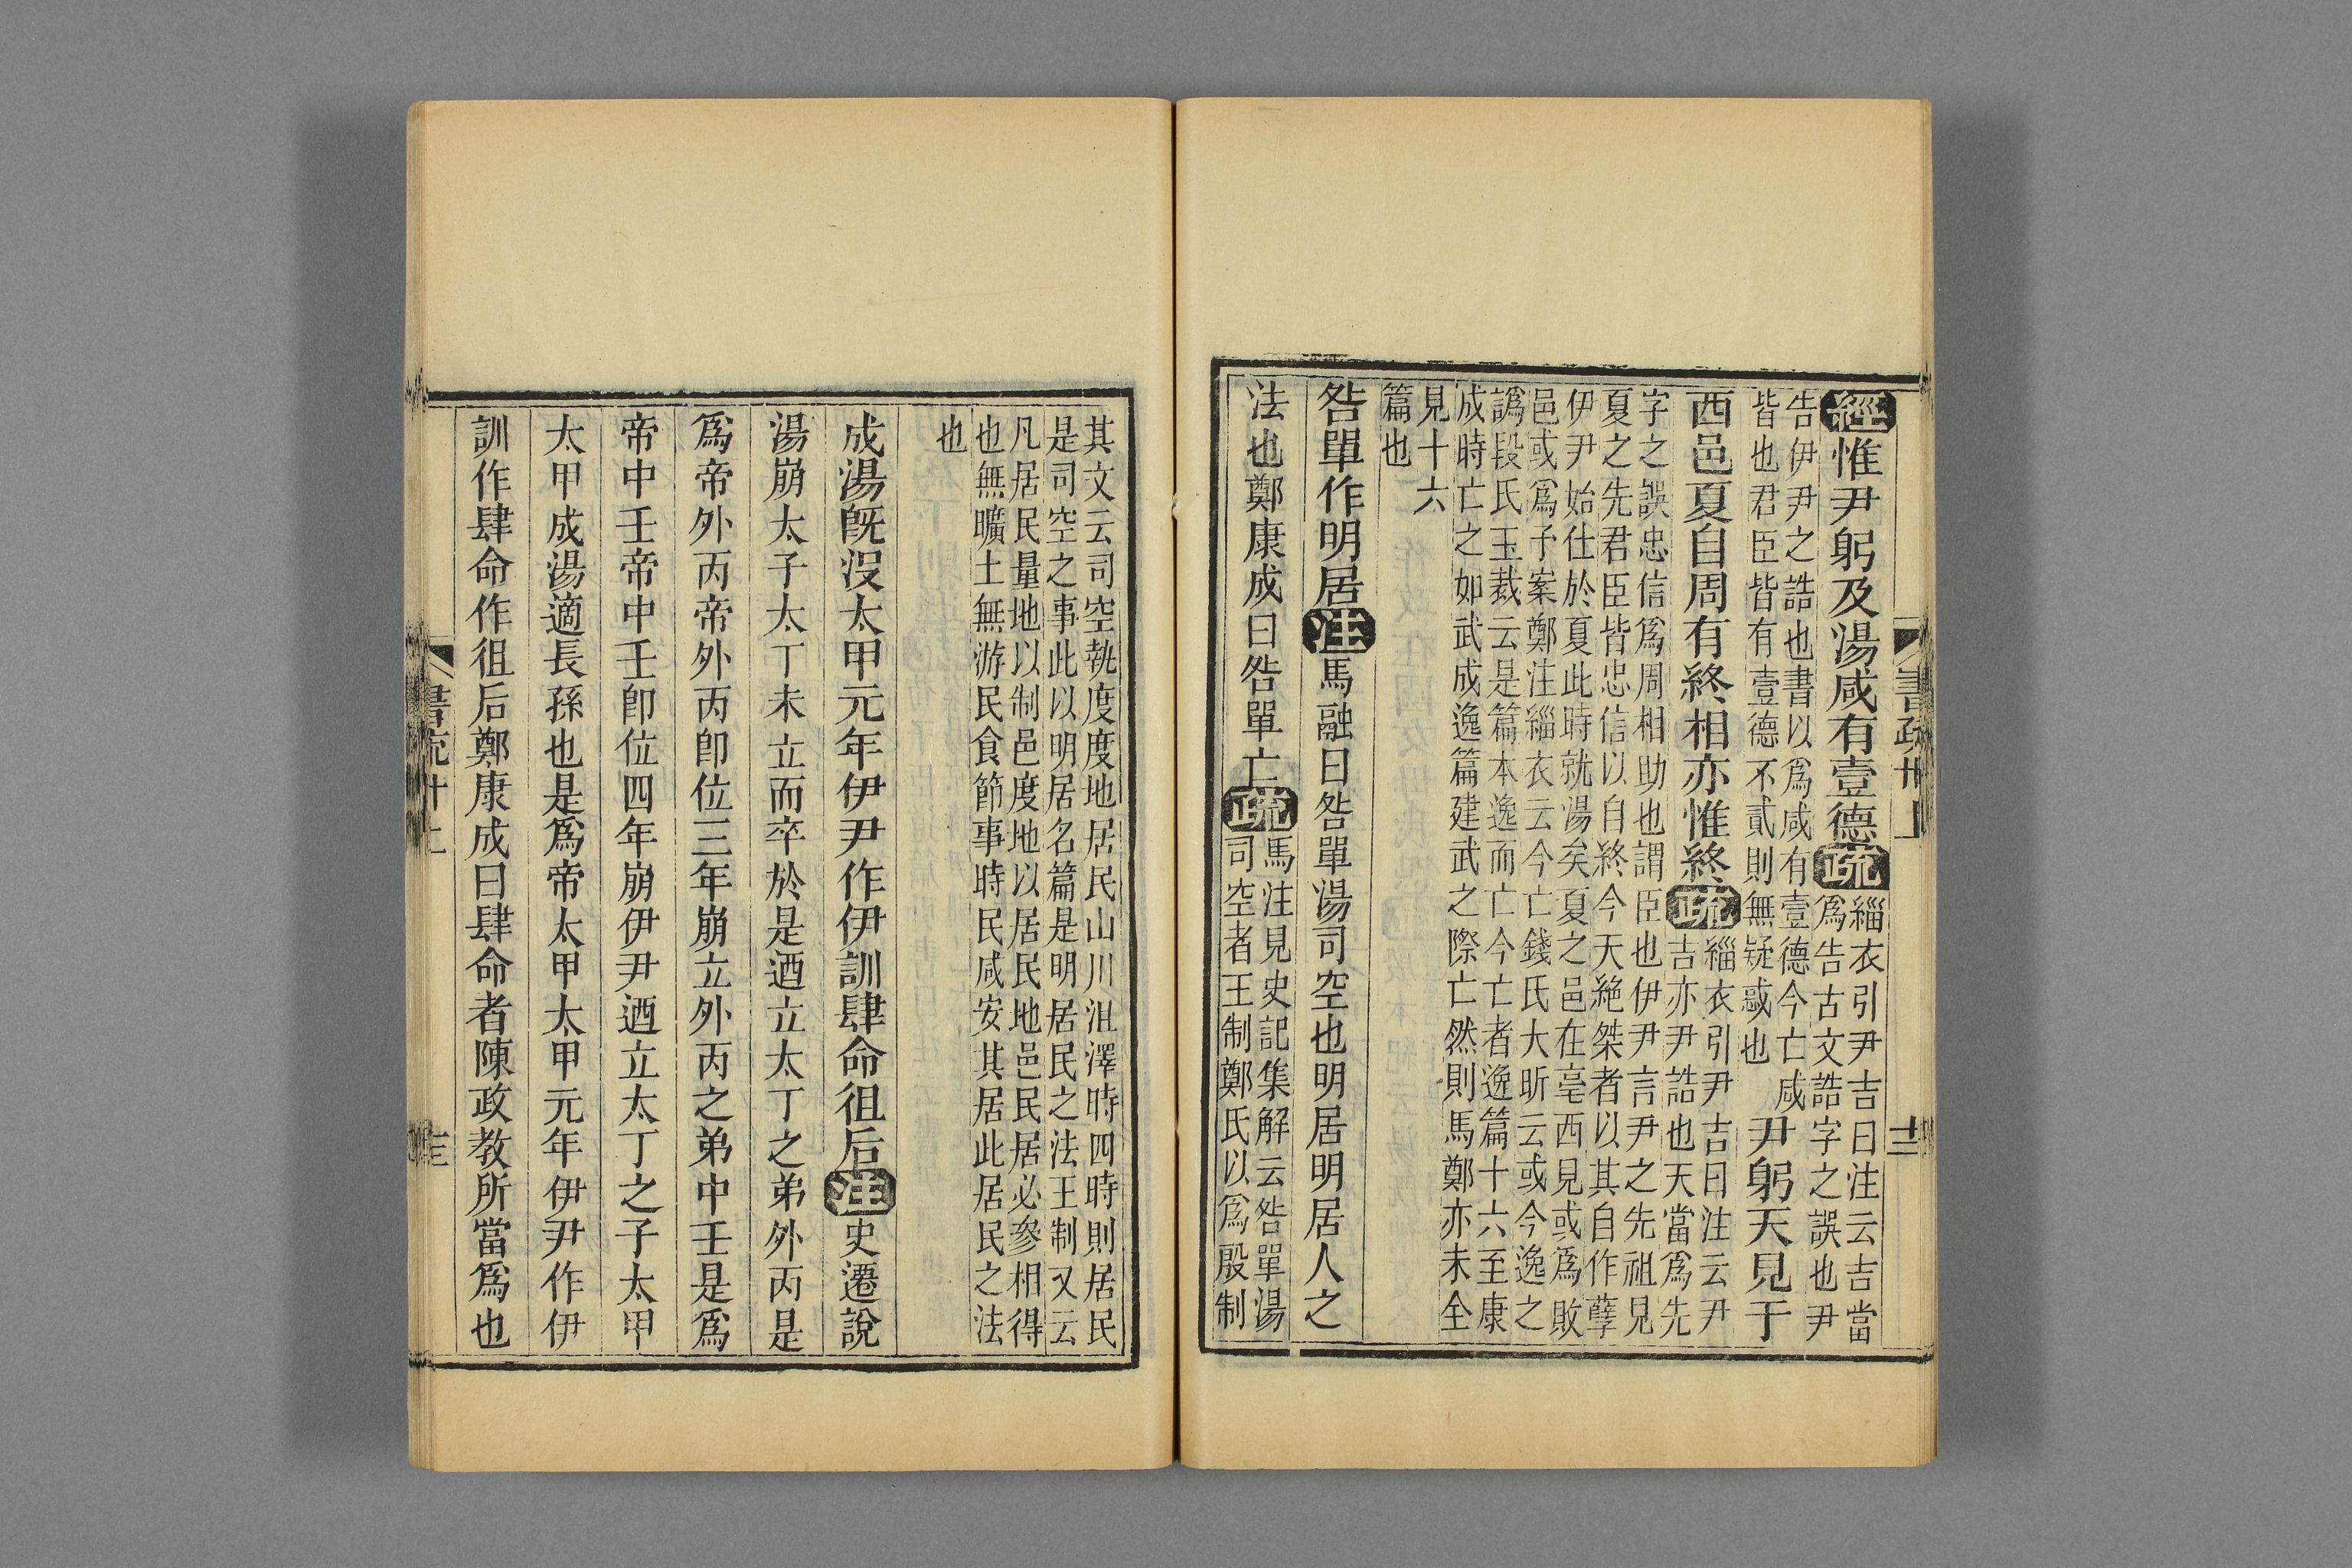 經惟尹躬及湯咸有壹德疏緇衣引尹吉曰注云吉當
爲告古文誥字之誤也尹
告伊尹之誥也書以爲咸有壹德今亡咸
皆也君臣皆有壹德不貳則無疑惑也
尹躬天見于
西邑夏自周有終相亦惟終疏緇衣引尹吉曰注云尹
吉亦尹誥也天當爲先
字之誤忠信爲周相助也謂臣也伊尹言尹之先祖見
夏之先君臣皆忠信以自終今天絕桀者以其自作孽
伊尹始仕於夏此時就湯矣夏之邑在亳西見或爲敗
邑或爲予案鄭注緇衣云今亡錢氏大昕云或今逸之
譌段氏玉裁云是篇本逸而亡今亡者逸篇十六至康
成時亡之如武成逸篇建武之際亡然則馬鄭亦未全
見十六
篇也
咎單作明居注馬融曰咎單湯司空也明居明居人之
法也鄭康成曰咎單亡疏馬注見史記集解云咎單湯
司空者王制鄭氏以爲殷制
其文云司空執度度地居民山川沮澤時四時則居民
是司空之事此以明居名篇是明居民之法王制又云
凡居民量地以制邑度地以居民地邑民居必參相得
也無曠土無游民食節事時民咸安其居此居民之法
也
成湯旣沒太甲元年伊尹作伊訓肆命徂后注史遷說
湯崩太子太丁未立而卒於是迺立太丁之弟外丙是
爲帝外丙帝外丙卽位三年崩立外丙之弟中壬是爲
帝中壬帝中壬卽位四年崩伊尹迺立太丁之子太甲
太甲成湯適長孫也是爲帝太甲太甲元年伊尹作伊
訓作肆命作徂后鄭康成曰肆命者陳政教所當爲也